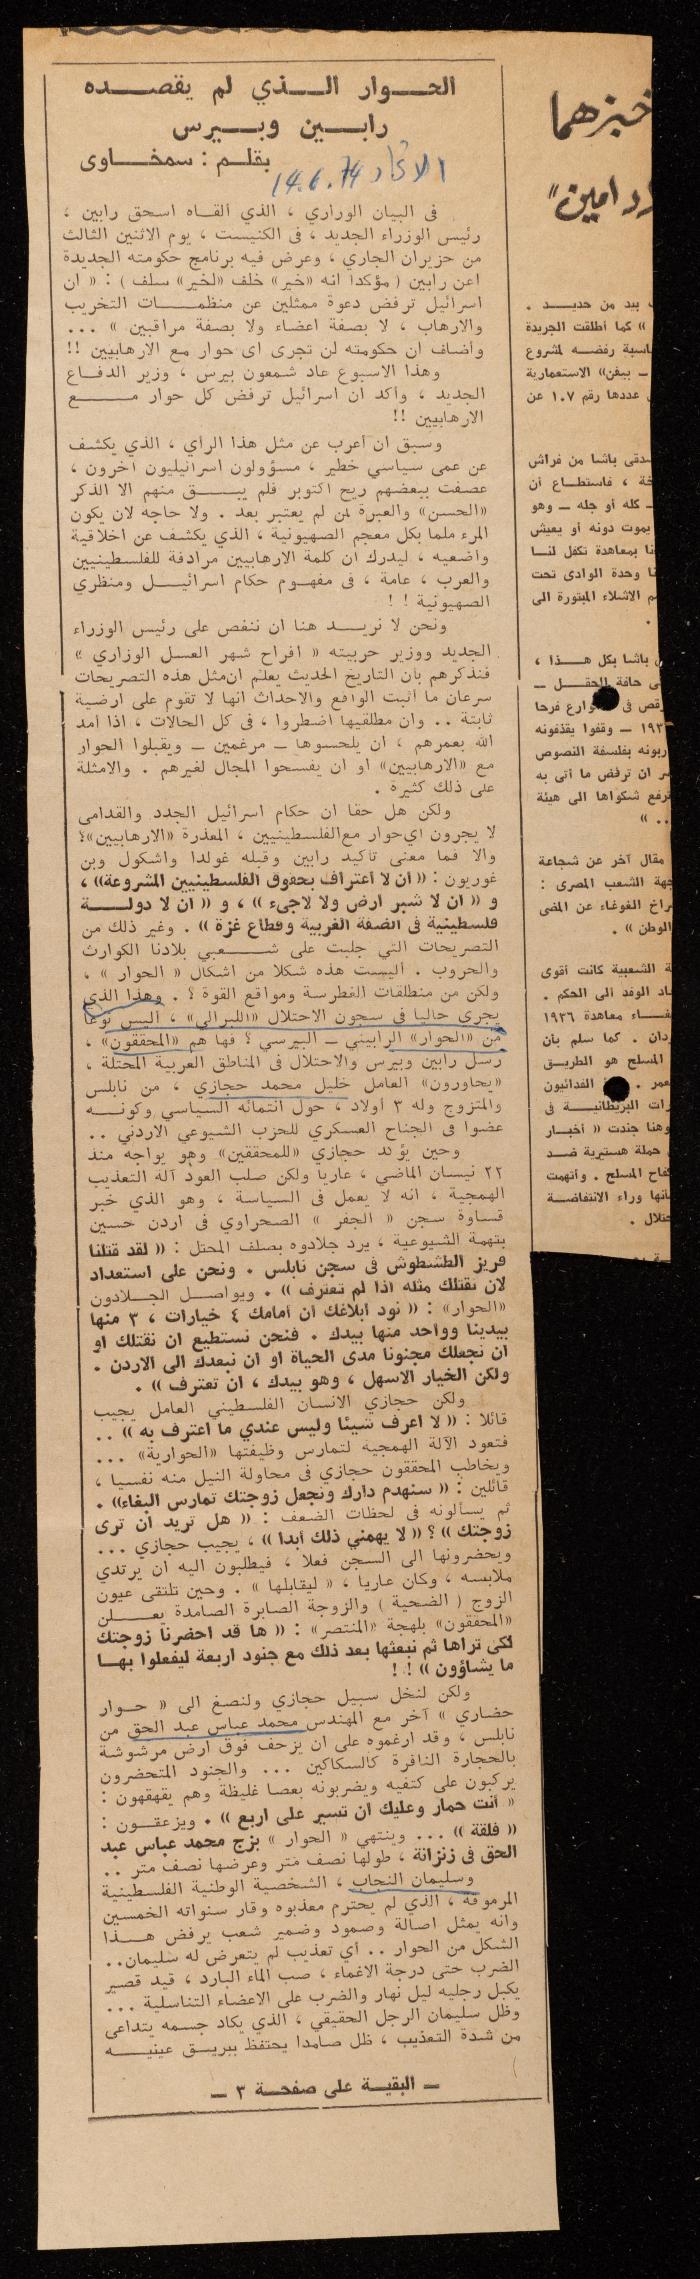 الحوار الذي لم يقصده
رابين وبيرس
بقلم : سمخاوى
الاتحاد 14.6.74
فى البيان الوزاري ، الذي ألقاه اسحق رابين ،
رئيس الوزراء الجديد ، فى الكنيست ، يوم الاثنين الثالث
من حزيران الجاري ، وعرض فيه برنامج حكومته الجديدة
اعن رابين ( مؤكدا انه «خير» خلف «لخير» سلف ) : « ان
اسرائيل ترفض دعوة ممثلين عن منظمات التخريب
والارهاب ، لا بصفة اعضاء ولا بصفة مراقبين » ...
وأضاف ان حكومته لن تجرى اى حوار مع الارهابيين !!
وهذا الاسبوع عاد شمعون بيرس ، وزير الدفاع
الجديد ، وأكد ان اسرائيل ترفض كل حوار مع
الارهابيين !!
وسبق ان أعرب عن مثل هذا الرأي ، الذي يكشف
عن عمى سياسي خطير ، مسؤولون اسرائيليون آخرون ،
عصفت ببعضهم ريح اكتوبر فلم يبق منهم الا الذكر
«الحسن» والعبرة لمن لم يعتبر بعد . ولا حاجه لان يكون
المرء ملما بكل معجم الصهيونية ، الذي يكشف عن اخلاقية
واضعيه ، ليدرك ان كلمة الارهابيين مرادفة للفلسطينيين
والعرب ، عامة ، فى مفهوم حكام اسرائيل ومنظري
الصهيونية ! !
ونحن لا نريد هنا ان ننغص على رئيس الوزراء
الجديد ووزير حربيته « افراح شهر العسل الوزاري »
فنذكرهم بأن التاريخ الحديث يعلم ان مثل هذه التصريحات
سرعان ما أثبت الواقع والاحداث انها لا تقوم على ارضية
ثابتة .. وان مطلقيها اضطروا ، فى كل الحالات ، اذا امد
الله بعمرهم ، ان يلحسوها ــ مرغمين ــ ويقبلوا الحوار
مع «الارهابيين» او ان يفسحوا المجال لغيرهم . والامثلة
على ذلك كثيرة .
ولكن هل حقا ان حكام اسرائيل الجدد والقدامى
لا يجرون اي حوار مع الفلسطينيين ، المعذرة «الارهابيين»؟
والا فما معنى تأكيد رابين وقبله غولدا واشكول وبن
غوريون : « ان لا اعتراف بحقوق الفلسطينيين المشروعة» ،
و « ان لا شبر ارض ولا لاجىء » ، و « ان لا دولة
فلسطينية فى الضفة الغربية وقطاع غزة » . وغير ذلك من
التصريحات التي جلبت على شعبي بلادنا الكوارث
والحروب . أليست هذه شكلا من اشكال « الحوار » ،
ولكن من منطلقات الغطرسة ومواقع القوة ؟ . وهذا الذي
يجري حاليا فى سجون الاحتلال «اللبرالي» ، أليس نوعا
من «الحوار» الرابيني ــ البيرسي ؟ فها هم «المحققون» ،
رسل رابين وبيرس والاحتلال فى المناطق العربية المحتلة ،
«يحاورون» العامل خليل محمد حجازي ، من نابلس
والمتزوج وله ٣ أولاد ، حول انتمائه السياسي وكونه
عضوا فى الجناح العسكري للحزب الشيوعي الاردني ..
وحين يؤكد حجازي «للمحققين» وهو يواجه منذ
٢٢ نيسان الماضي ، عاريا ولكن صلب العود آلة التعذيب
الهمجية ، انه لا يعمل فى السياسة ، وهو الذي خبر
قساوة سجن « الجفر » الصحراوي فى اردن حسين
بتهمة الشيوعية ، يرد جلادوه بصلف المحتل : « لقد قتلنا
فريز الطشطوش فى سجن نابلس . ونحن على استعداد
لان نقتلك مثله اذا لم تعترف » . ويواصل الجلادون
«الحوار» : « نود ابلاغك ان أمامك ٤ خيارات ، ٣ منها
بيدينا وواحد منها بيدك . فنحن نستطيع ان نقتلك او
ان نجعلك مجنونا مدى الحياة او ان نبعدك الى الاردن .
ولكن الخيار الاسهل ، وهو بيدك ، ان تعترف » .
ولكن حجازي الانسان الفلسطيني العامل يجيب
قائلا : « لا اعرف شيئا وليس عندي ما اعترف به » ..
فتعود الآلة الهمجيه لتمارس وظيفتها «الحوارية» ...
ويخاطب المحققون حجازي فى محاولة النيل منه نفسيا ،
قائلين : « سنهدم دارك ونجعل زوجتك تمارس البغاء» .
ثم يسألونه فى لحظات الضعف : « هل تريد ان ترى
زوجتك » ؟ « لا يهمني ذلك أبدا » ، يجيب حجازي ...
ويحضرونها الى السجن فعلا ، فيطلبون اليه ان يرتدي
ملابسه ، وكان عاريا ، « ليقابلها » . وحين تلتقى عيون
الزوج ( الضحية ) والزوجة الصابرة الصامدة يعلن
«المحققون» بلهجة «المنتصر» : « ها قد احضرنا زوجتك
لكى تراها ثم نبعثها بعد ذلك مع جنود اربعة ليفعلوا بها
ما يشاؤون » ! !
ولكن لنخل سبيل حجازي ولنصغ الى « حوار
حضاري » آخر مع المهندس محمد عباس عبد الحق من
نابلس ، وقد ارغموه على ان يزحف فوق ارض مرشوشة
بالحجارة النافرة كالسكاكين ... والجنود المتحضرون
يركبون على كتفيه ويضربونه بعصا غليظة وهم يقهقهون :
« أنت حمار وعليك ان تسير على اربع » . ويزعقون :
« فلقة » ... وينتهي « الحوار » بزج محمد عباس عبد
الحق فى زنزانة ، طولها نصف متر وعرضها نصف متر ..
وسليمان النجاب ، الشخصية الوطنية الفلسطينية
المرموقة ، الذي لم يحترم معذبوه وقار سنواته الخمسين
وانه يمثل اصالة وصمود وضمير شعب يرفض هذا
الشكل من الحوار .. أي تعذيب لم يتعرض له سليمان..
الضرب حتى درجة الاغماء ، صب الماء البارد ، قيد قصير
يكبل رجليه ليل نهار والضرب على الاعضاء التناسلية ...
وظل سليمان الرجل الحقيقي ، الذي يكاد جسمه يتداعى
من شدة التعذيب ، ظل صامدا يحتفظ ببريق عينيه
ــ البقية على صفحة ٣ ــ
خبزهما
امين"
بيد من حديد .
» كما أطلقت الجريدة
رفضه لمشروع
ــ بيفن» الاستعمارية
عددها رقم ١٠٧ عن
صدقى باشا من فراش
، فاستطاع أن
ــ كله أو جله ــ وهو
يموت دونه أو يعيش
بمعاهدة تكفل لنا
وحدة الوادى تحت
الاشلاء المبتورة الى
باشا بكل هذا ،
حافة الحقل ــ
فى شوارع فرحا
ــ وقفوا يقذفونه
بفلسفة النصوص
ان ترفض ما أتى به
ترفع شكواها الى هيئة
.. »
مقال آخر عن شجاعة
الشعب المصرى :
الغوغاء عن المضى
الوطن » .
الشعبية كانت أقوى
الوفد الى الحكم .
معاهدة ١٩٣٦
. كما سلم بأن
المسلح هو الطريق
الفدائيون
البريطانية فى
وهنا جندت « أخبار
حملة هستيرية ضد
المسلح . وأتهمت
وراء الانتفاضة